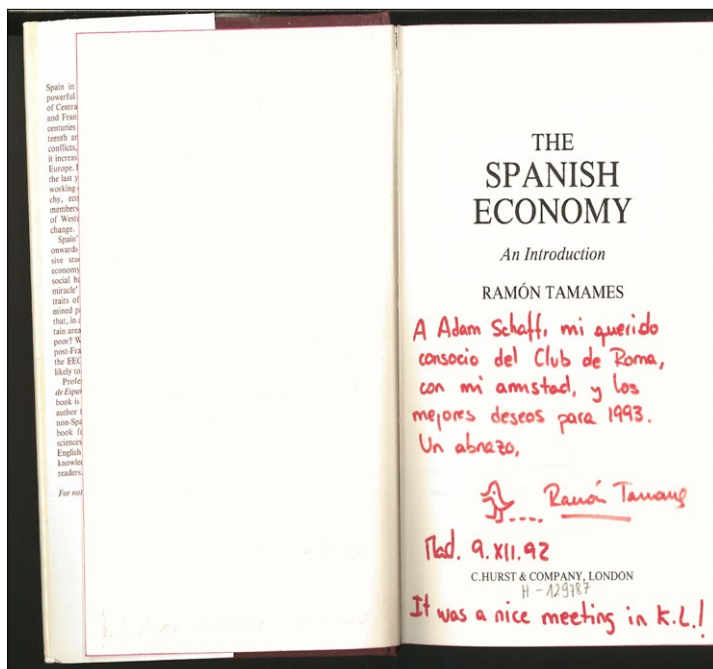 Spain in
powerful
of Centra
and Fran
centuries
teenth an
conflicts,
it increas
Europe.
the last y
working
chy, eco
members
of West
change.
Spain'
onwards
sive stu
economy
social ba
miracle'
traits of
mined pa
that, in a
tain area
poor? W
post-Fra
the EEC
likely to
Profe
de Españ
book is
author
non-Spa
book fo
sciences
English
knowled
readers.
For not
THE
SPANISH
ECONOMY
An Introduction
RAMÓN TAMAMES
A Adam Schaff, mi querido
consocio del Club de Roma,
con mi amistad, y los
mejores deseos para 1993.
Un abrazo,
Ramón Tamames
Mad. 9.XII.92
C.HURST & COMPANY, LONDON
H - 129787
It was a nice meeting in K.L.!